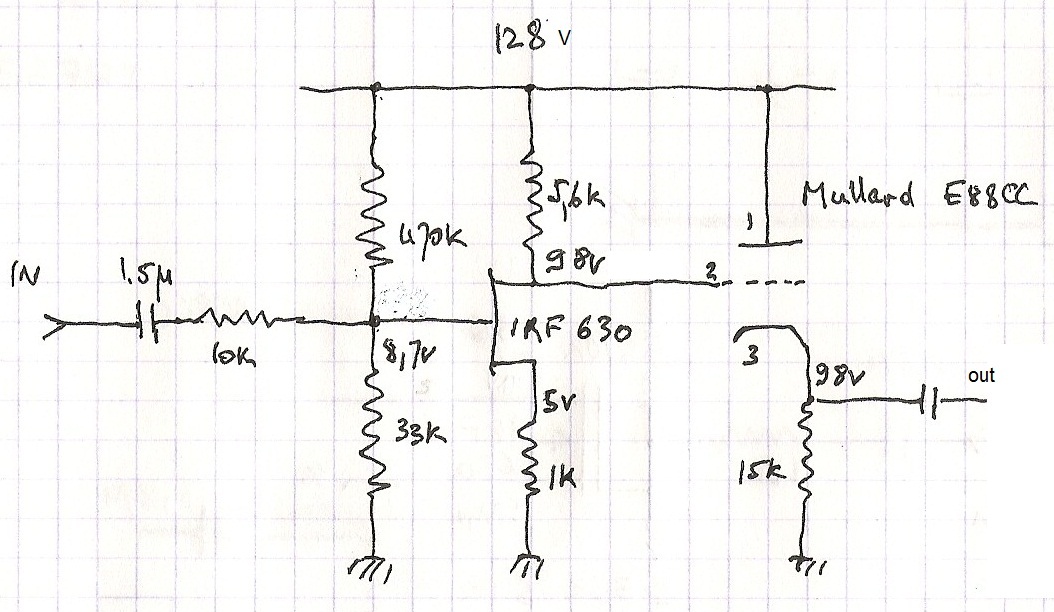 128 v
5,6k
Mullard E88CC
1
470k
98v
2
IN
1.5µ
IRF 630
10k
8,7v
3
98v
out
5v
33k
15k
1K